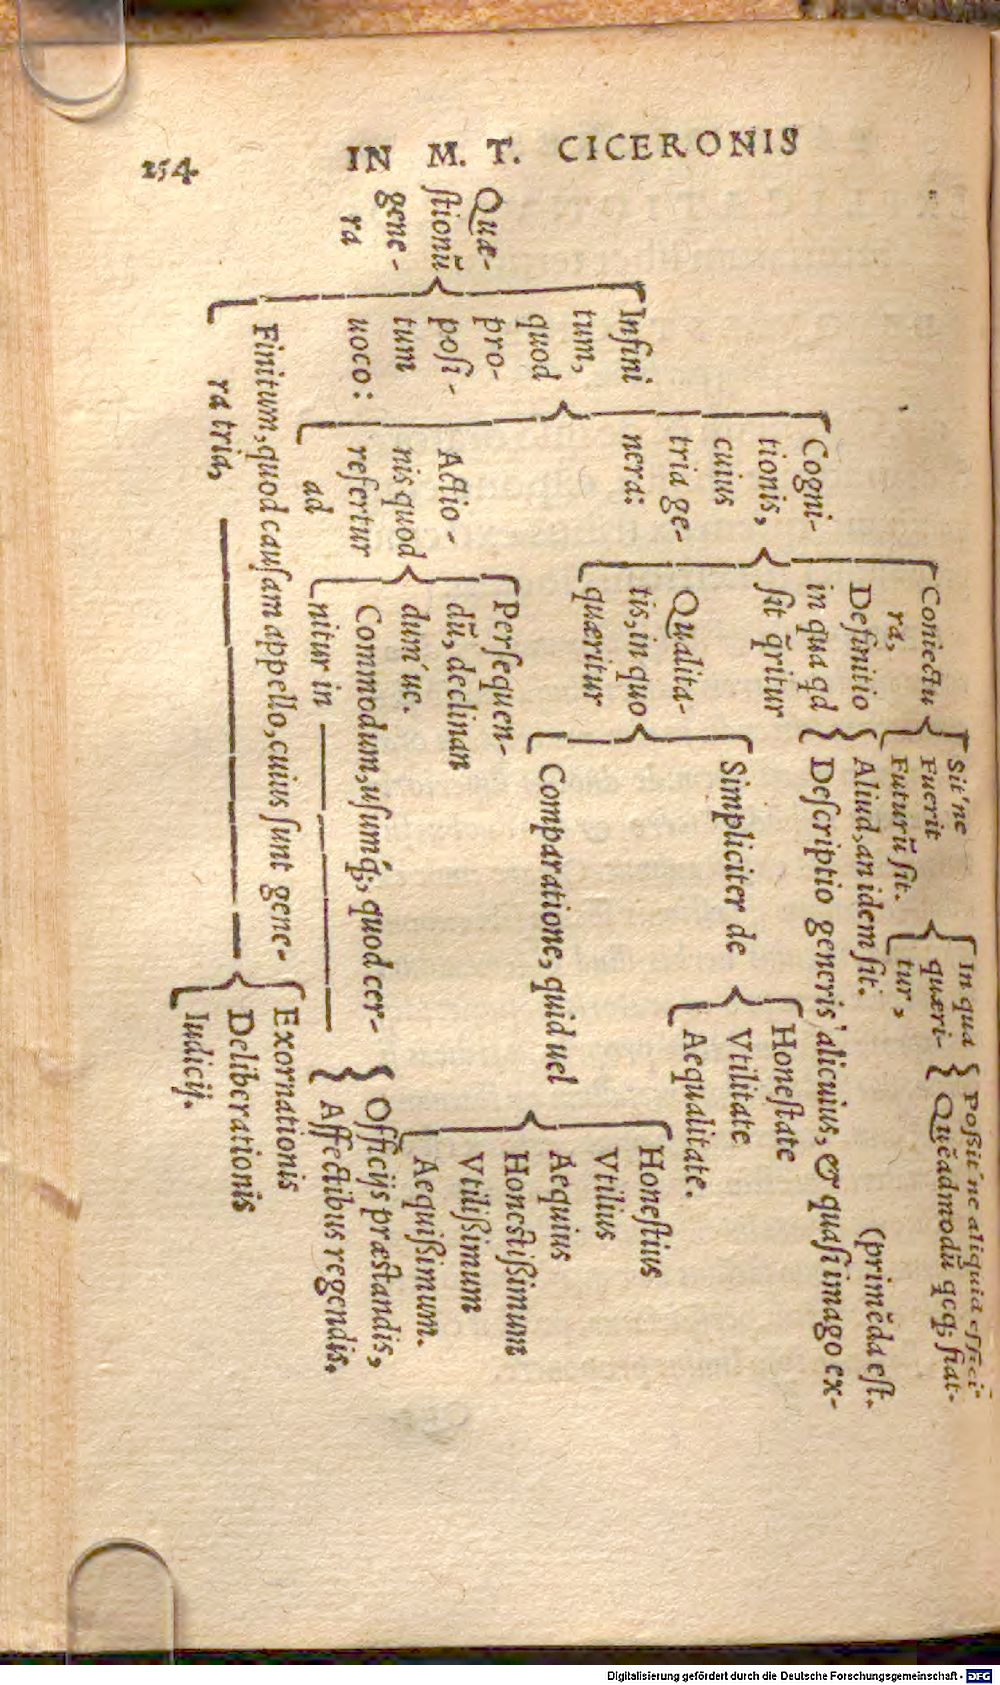 254. IN M. T. CICERONIS
Quæ-
ſtionũ
gene-
ra
Infini
tum,
quod
pro-
poſi-
tum
uoco:
Cogni-
tionis,
cuius
tria ge-
nera:
Coniectu
ra,
Sit'ne
Fuerit
Futurũ ſit.
In qua
quæri-
tur,
Poßit'ne aliquid effici
Quẽadmodũ qcq; fiat.
Definitio
in qua qd
ſit q̃ritur
Aliud, an idem ſit.
Deſcriptio generis alicuius, & quaſi imago ex-
(primẽda eſt.
Qualita-
tis, in quo
quæritur
Simpliciter de
Honeſtate
Vtilitate
Aequalitate.
Comparatione, quid uel
Honeſtius
Vtilius
Aequius
Honeſtißimum
Vtilißimum
Aequißimum.
Actio-
nis quod
refertur
ad
Perſequen-
dũ, declinan
dum'ue.
Commodum, uſumq́;, quod cer-
nitur in
Officijs præſtandis,
Affectibus regendis.
Finitum, quod cauſam appello, cuius ſunt gene-
ra tria,
Exornationis
Deliberationis
Iudicij.
Digitalisierung gefördert durch die Deutsche Forschungsgemeinschaft - DFG